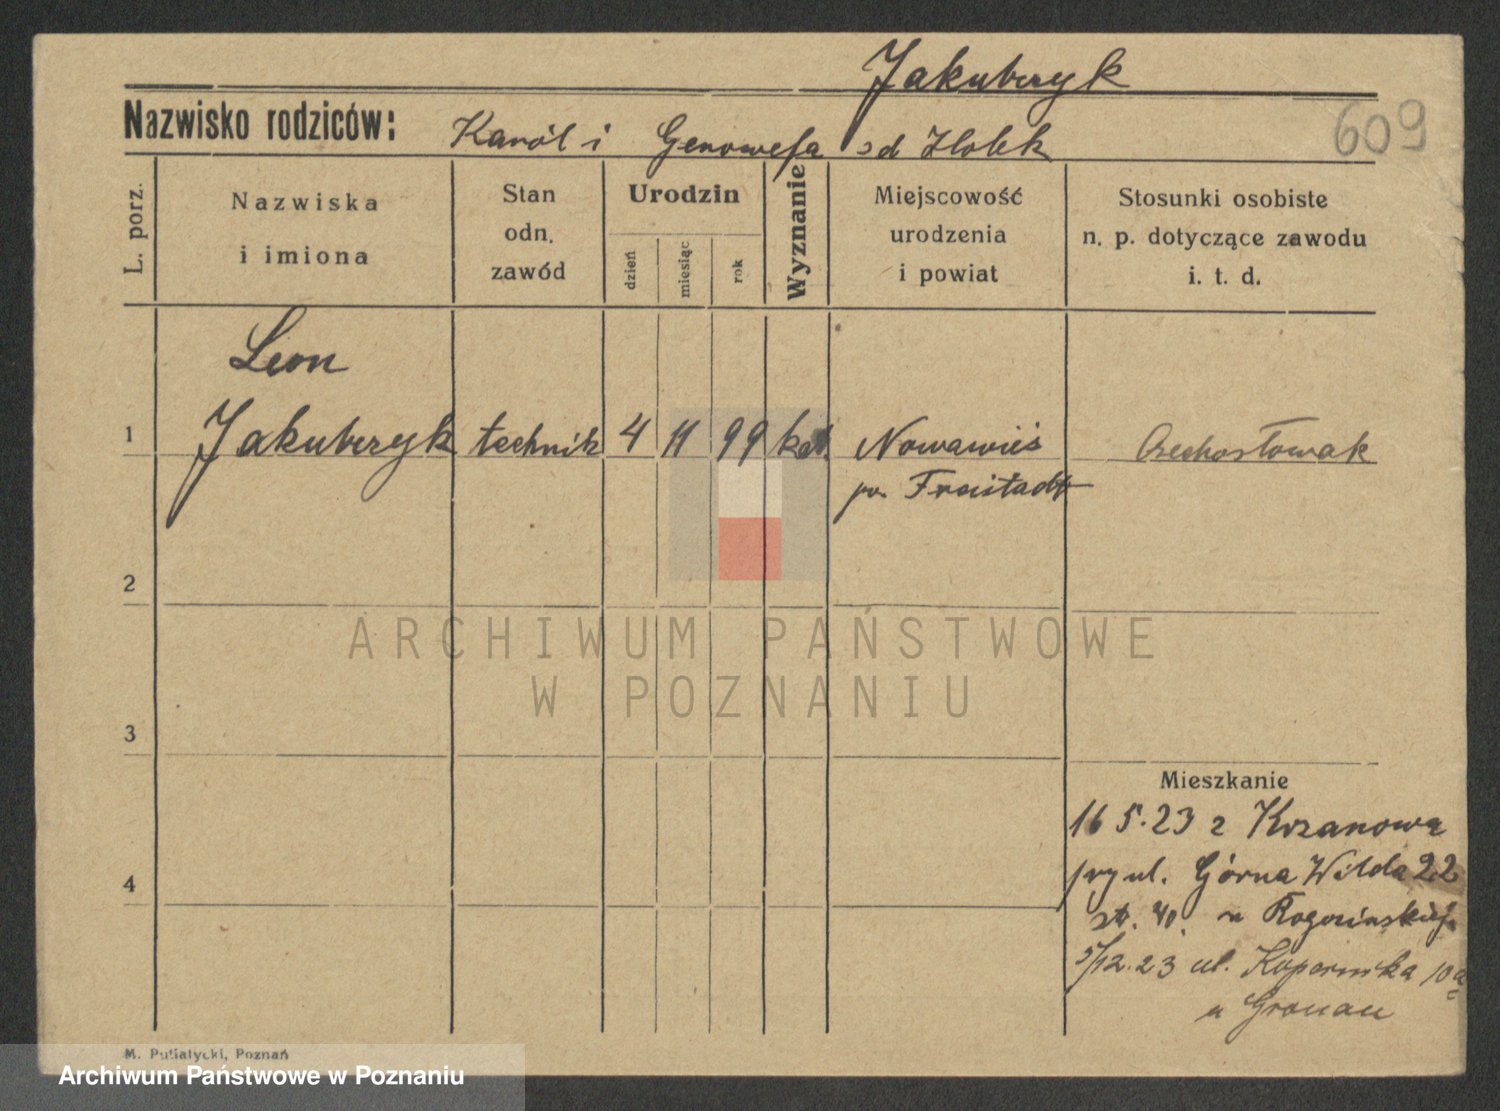 Jakubczyk
609
Nazwisko rodziców: Karól i Genowefa
L. porz.
Nazwiska i imiona
Stan odn. zawód
Urodzin
dzień
miesiąc
rok
Wyznanie
Miejscowość urodzenia i powiat
Stosunki osobiste n. p. dotyczące zawodu i. t. d.
Leon
1 Jakubczyk technik 4 11 99 kat. Nowawieś Czechosłowak
pow. Freistadt
2
3
4
Mieszkanie
16 5.23 z Krzanowa
przy ul. Górna Wilda 22
u Rogozińskiej
5/12.23 ul. Kopernika 10a
u Gronau
M. Putiatycki, Poznań
ARCHIWUM PAŃSTWOWE
W POZNANIU
Archiwum Państwowe w Poznaniu